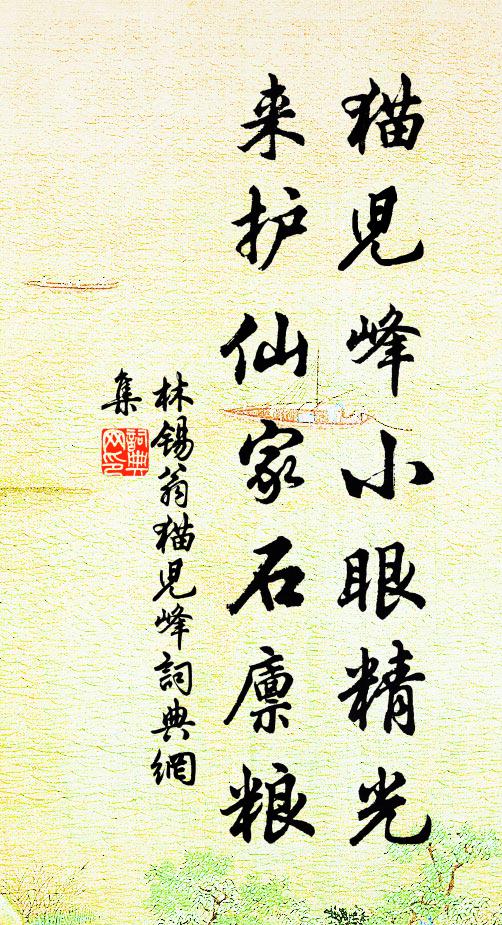 猫児峰小眼精光
来护仙家石廪粮
林锡翁猫児峰詞典網
集
詞典
网印